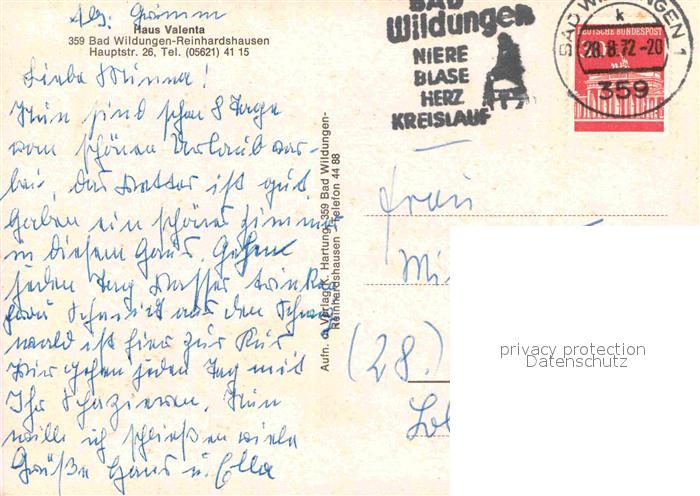 Abs: Grimm
Haus Valenta
359 Bad Wildungen-Reinhardshausen
Hauptstr. 26, Tel. (05621) 41 15
Liebe Minna!
Nun sind schon 8 Tage
vom schönen Urlaub vor-
bei, das Wetter ist gut
haben ein schönes Zimmer
in diesem Haus. Gehen
jeden Tag Wasser trinken
Frau Schmidt aus den Schwarz
wald ist hier zur Kur
Wir gehen jeden Tag mit
Ihr Spazieren. Nun
will ich schließen viele
Grüße Hans u. Ella
Aufn. u. Verlag K. Hartung, 359 Bad Wildungen-
Reinhardshausen Telefon 44 88
BAD
Wildungen
NIERE
BLASE
HERZ
KREISLAUF
BAD WILDUNGEN 1
k
28.8.72-20
359
DEUTSCHE BUNDESPOST
Frau
Mi
(28.)
privacy protection
Datenschutz